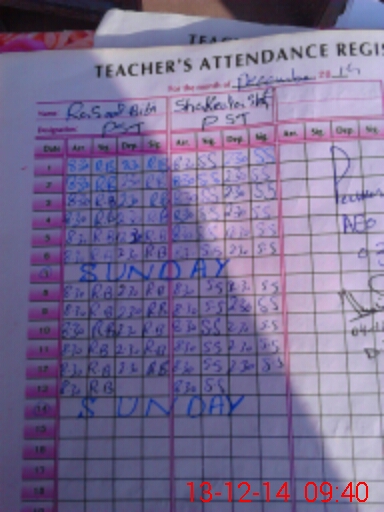 TEACHER'S ATTENDANCE REGIS
For the month of December 2014
Name: Rasool Bibi
Designation: PST PST
Date Arr. Sig. Dep. Sig. Arr. Sig. Dep. Sig. Arr. Sig. Dep. Sig.
1 830 RB 230 RB 830 SS 230 SS
2 830 RB 230 RB 830 SS 230 SS
3 830 RB 230 RB 830 SS 230 SS
4 830 RB 230 RB 830 SS 230 SS
5 830 RB 230 RB 830 SS 230 SS AEO
6 830 RB 230 RB 830 SS 230 SS
7 SUNDAY
8 830 RB 230 RB 830 SS 230 SS
9 830 RB 230 RB 830 SS 230 SS
10 830 RB 230 RB 830 SS 230 SS
11 830 RB 230 RB 830 SS 230 SS
12 830 RB 230 RB 830 SS 230 SS
13 830 RB 830 SS
14 SUNDAY
15
16
17
18
13-12-14 09:40